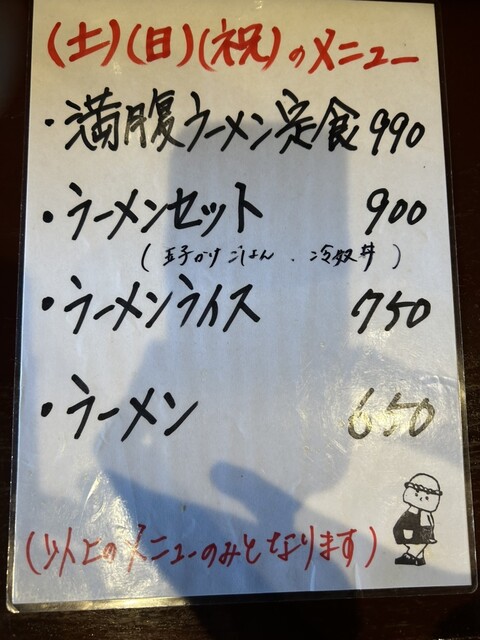 (土)(日)(祝)のメニュー
・満腹ラーメン定食 990
・ラーメンセット 900
(玉子かけごはん、冷奴丼)
・ラーメンライス 750
・ラーメン 650
(以上のメニューのみとなります)